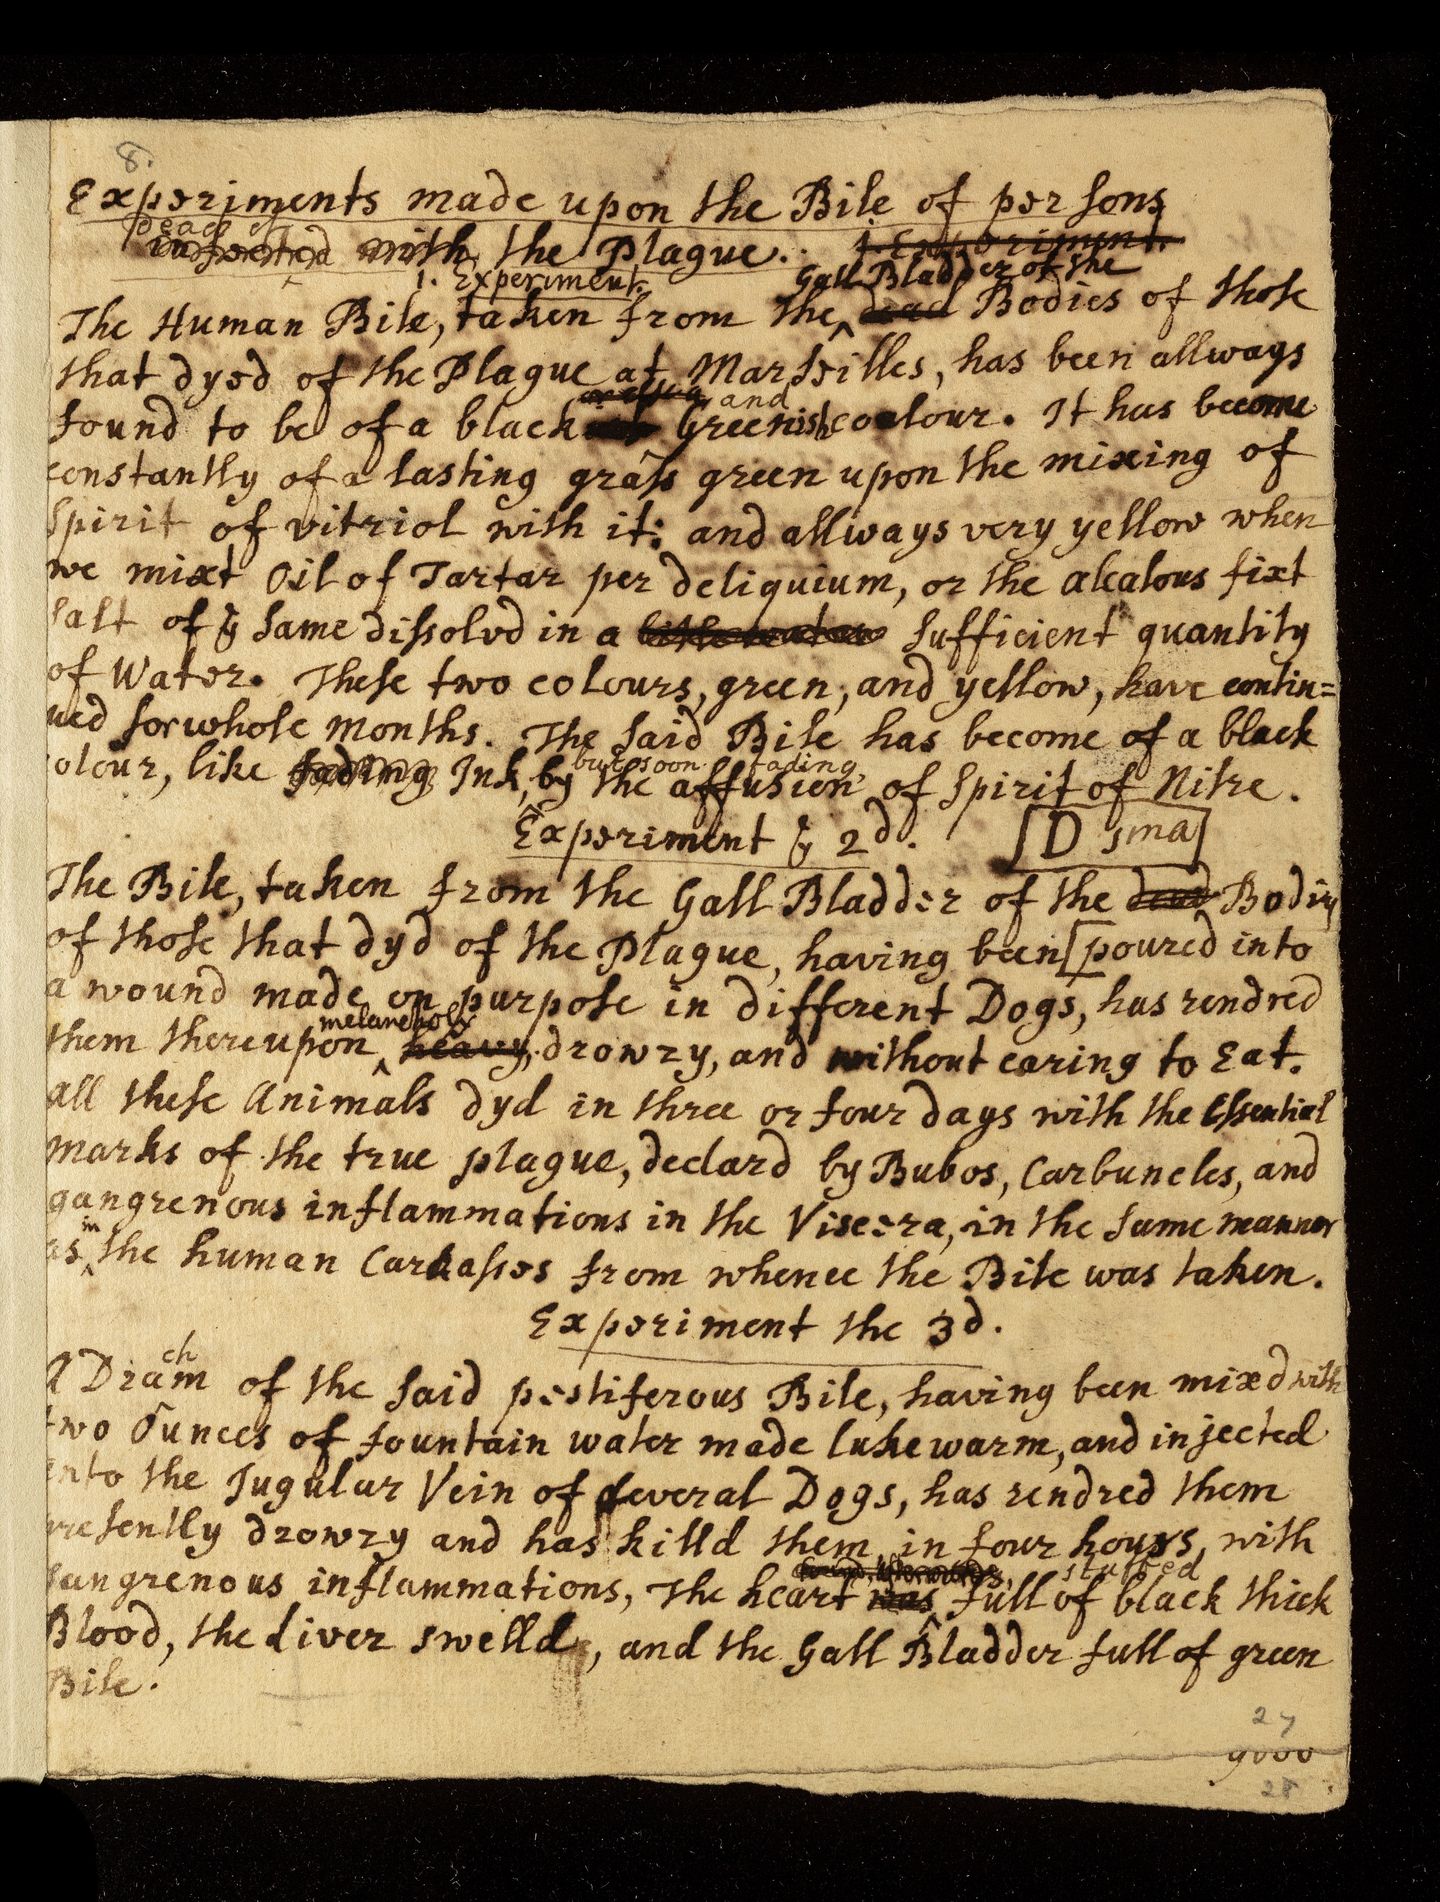 8.
Experiments made upon the Bile of persons
dead of
infected with the Plague. 1. Experiment.
1. Experiment. Gall Bladder of the
The Human Bile, taken from the dead Bodies of those
that dyed of the Plague at Marseilles, has been allways
and
found to be of a black Greenish colour. It has become
constantly of a lasting grass green upon the mixing of
Spirit of vitriol with it: and allways very yellow when
we mixt Oil of Tartar per deliquium, or the alcalous fixt
Salt of ye same dissolvd in a little water sufficient quantity
of Water. These two colours, green, and yellow, have contin=
ued for whole months. The said Bile has become of a black
but soon fading,
colour, like fading Ink, by the affusion of Spirit of Nitre.
Experiment ye 2d. [D sma]
The Bile, taken from the Gall Bladder of the dead Bodies
of those that dyd of the Plague, having been [poured into
a wound made on purpose in different Dogs, has rendred
melancholy
them thereupon heavy, drowzy, and without caring to Eat.
all these Animals dyd in three or four days with the Essential
marks of the true plague, declard by Bubos, Carbuncles, and
gangrenous inflammations in the Viscera, in the same manner
in
as the human Carkasses from whence the Bile was taken.
Experiment the 3d.
ch
A Dram of the said pestiferous Bile, having been mixd with
two Ounces of fountain water made lukewarm, and injected
into the Jugular Vein of several Dogs, has rendred them
presently drowzy and has killd them in four hours, with
found, afterwards, stuffed
gangrenous inflammations, The heart was full of black thick
Blood, the Liver swelld, and the Gall Bladder full of green
Bile.
27
28